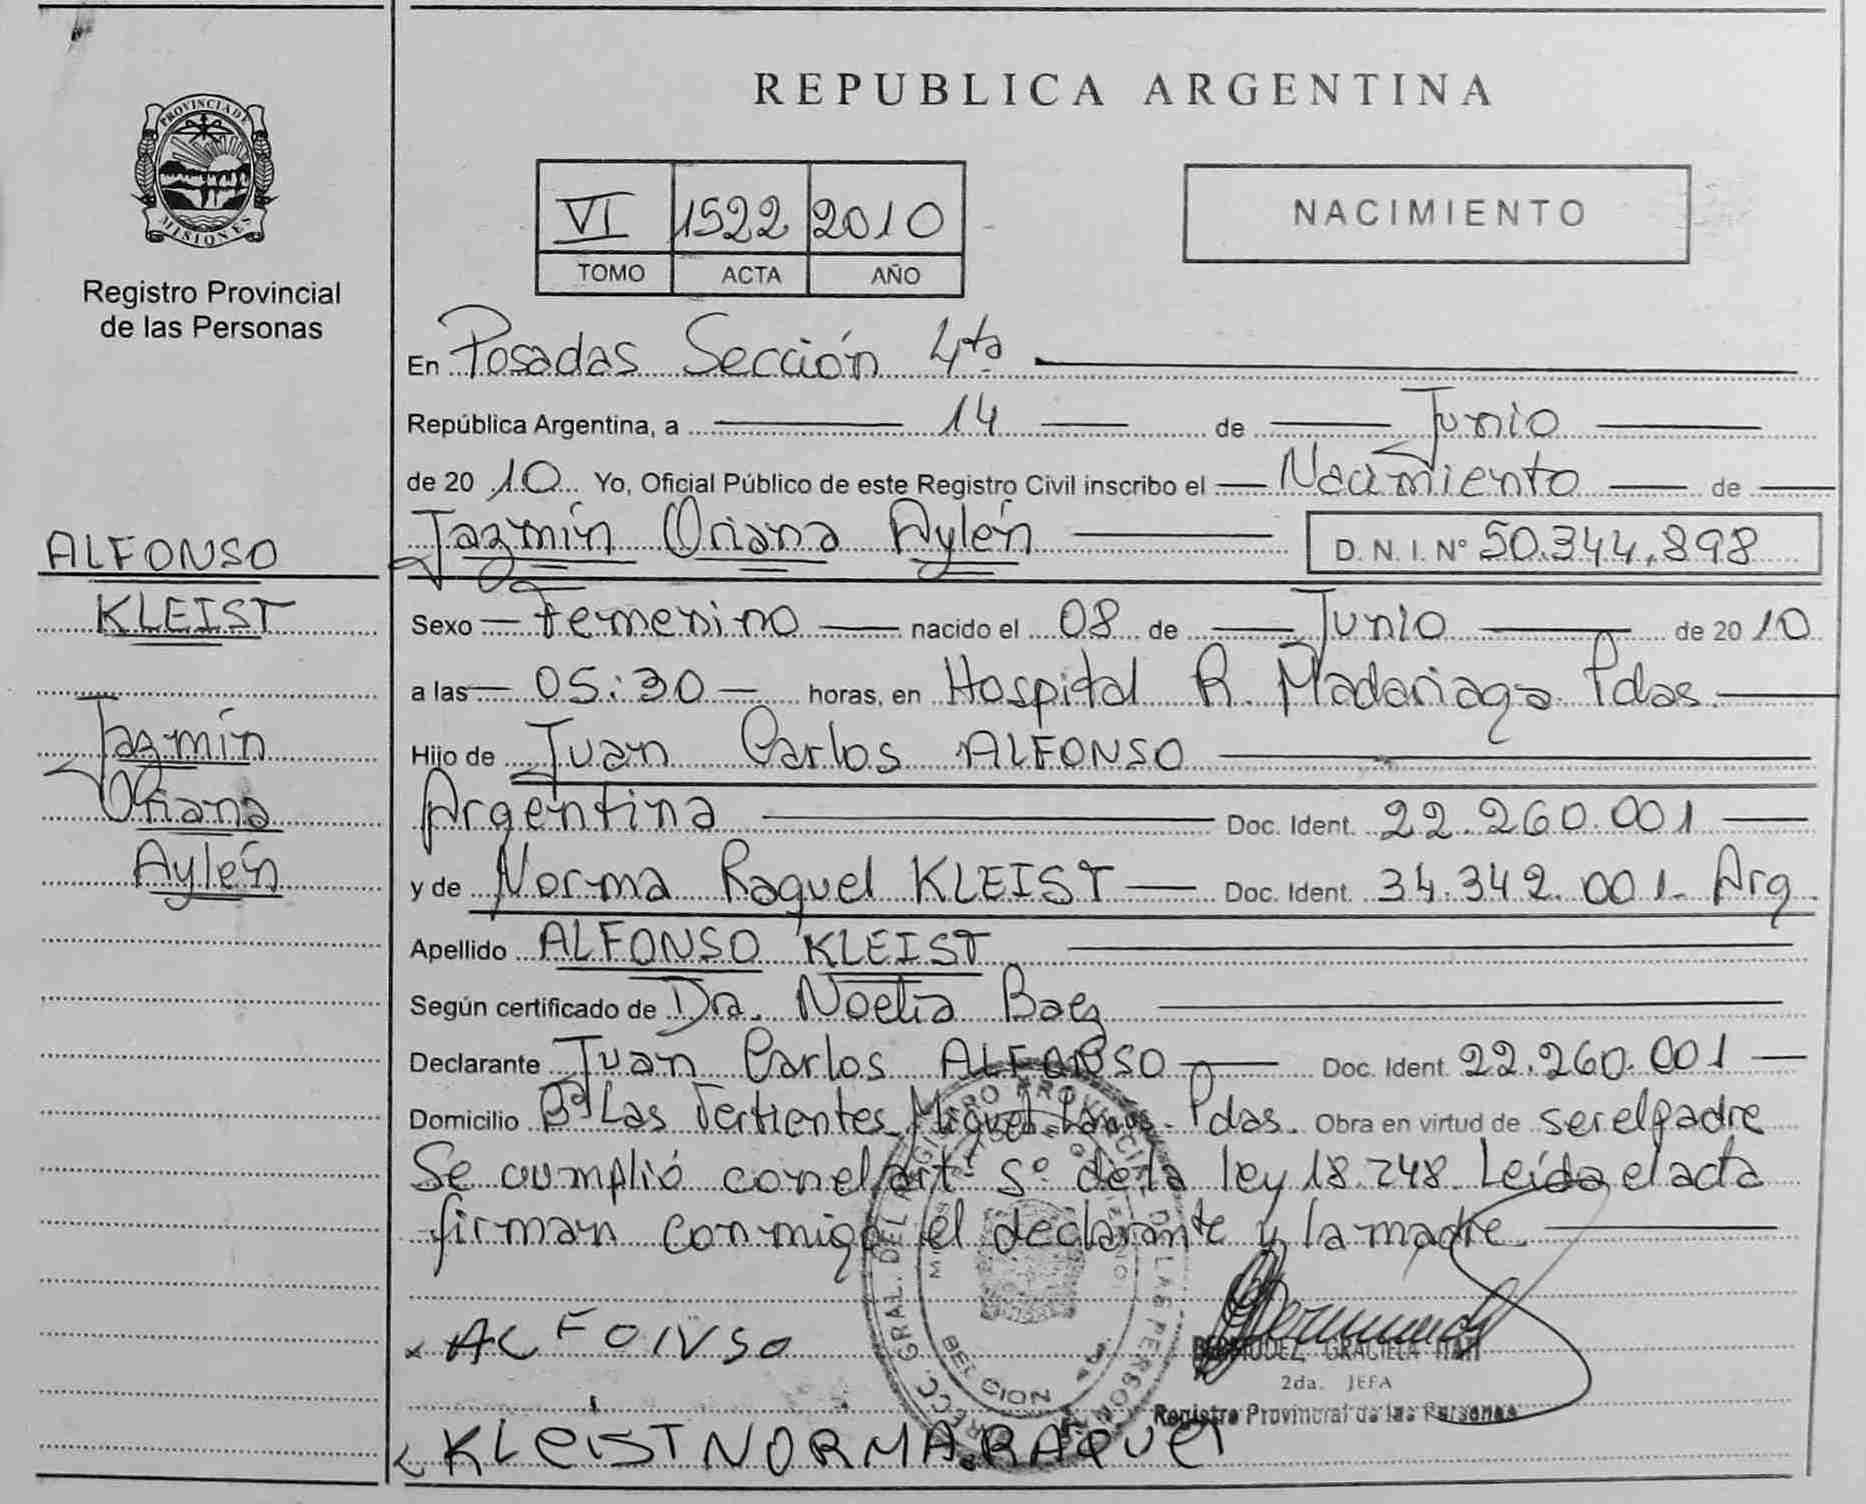 PROVINCIA DE
MISIONES
Registro Provincial
de las Personas
ALFONSO
KLEIST
Jazmín
Oriana
Aylén
REPUBLICA ARGENTINA
VI 1522 2010
TOMO ACTA AÑO
NACIMIENTO
En Posadas Sección 4ta
República Argentina, a 14 de Junio
de 2010 Yo, Oficial Público de este Registro Civil inscribo el Nacimiento de
Jazmín Oriana Aylén D. N. I. Nº 50.344.898
Sexo Femenino nacido el 08 de Junio de 2010
a las 05:30 horas, en Hospital R. Madariaga Pdas.
Hijo de Juan Carlos ALFONSO
Argentina Doc. Ident. 22.260.001
y de Norma Raquel KLEIST Doc. Ident. 34.342.001- Arg
Apellido ALFONSO KLEIST
Según certificado de Dra. Noelia Baez
Declarante Juan Carlos ALFONSO Doc. Ident. 22.260.001
Domicilio Bº Las Vertientes Miguel Pdas. Obra en virtud de ser el padre
Se cumplió con el art. 5º de la ley 18.248. Leída el acta
firman conmigo el declarante y la madre.
ALFONSO
BERMUDEZ GRACIELA ITATI
2da. JEFA
Registro Provincial de las Personas
KLEIST NORMA RAQUEL